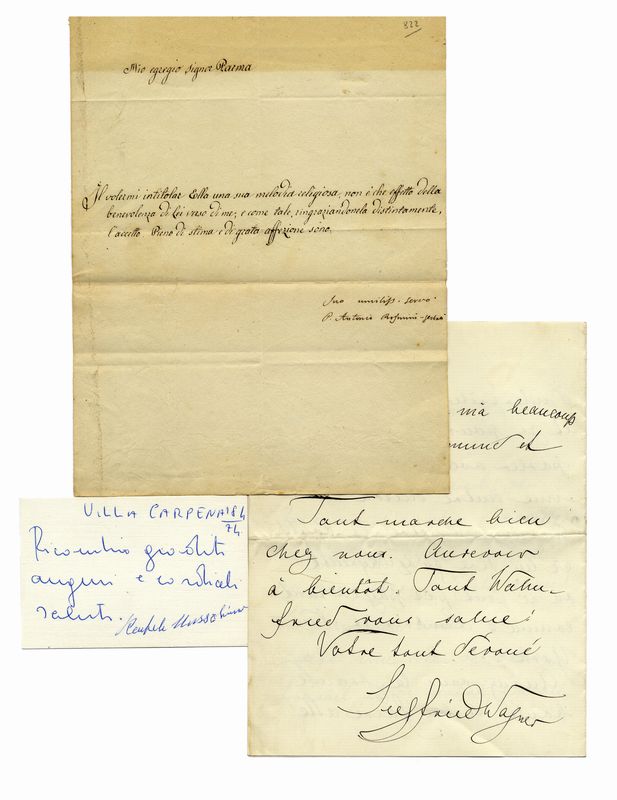 822
Mio egregio signor Parma
Il volermi intitolar Ella una sua melodia religiosa, non è che effetto della
benevolenza di Lei verso di me; e come tale, ringraziandonela distintamente,
l'accetto. Pieno di stima e di grata affezione sono.
Suo umiliss. servo
P. Antonio Rosmini-Serbati
m'a beaucoup
et
Tout marche bien
chez nous. Aurevoir
à bientôt. Tout Wahn-
fried vous salue!
Votre tout dévoué
Siegfried Wagner
VILLA CARPENA
74
Ricambio graditi
auguri e cordiali
saluti.
Rachele Mussolini